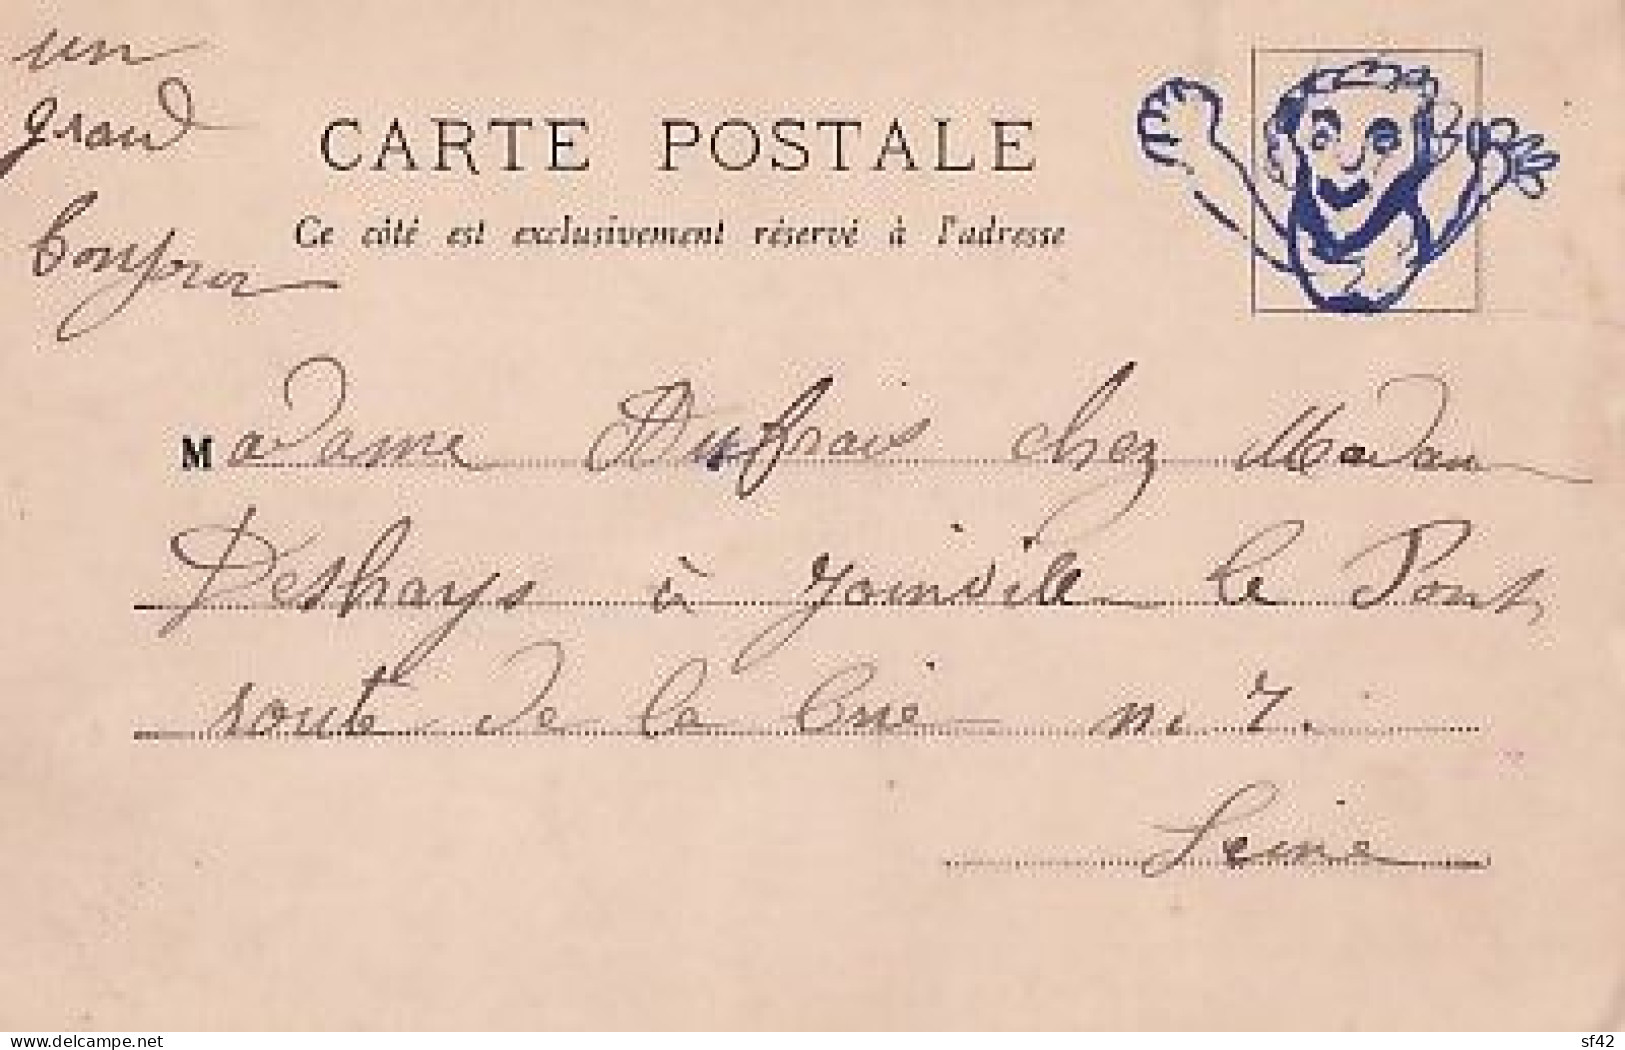 un
grand
bonjour
CARTE POSTALE
Ce côté est exclusivement réservé à l'adresse
Madame Dufrais chez Madam
Déshays à Joinville le Pont
route de la Brie n. 7.
Seine
delcampe.net
sf42